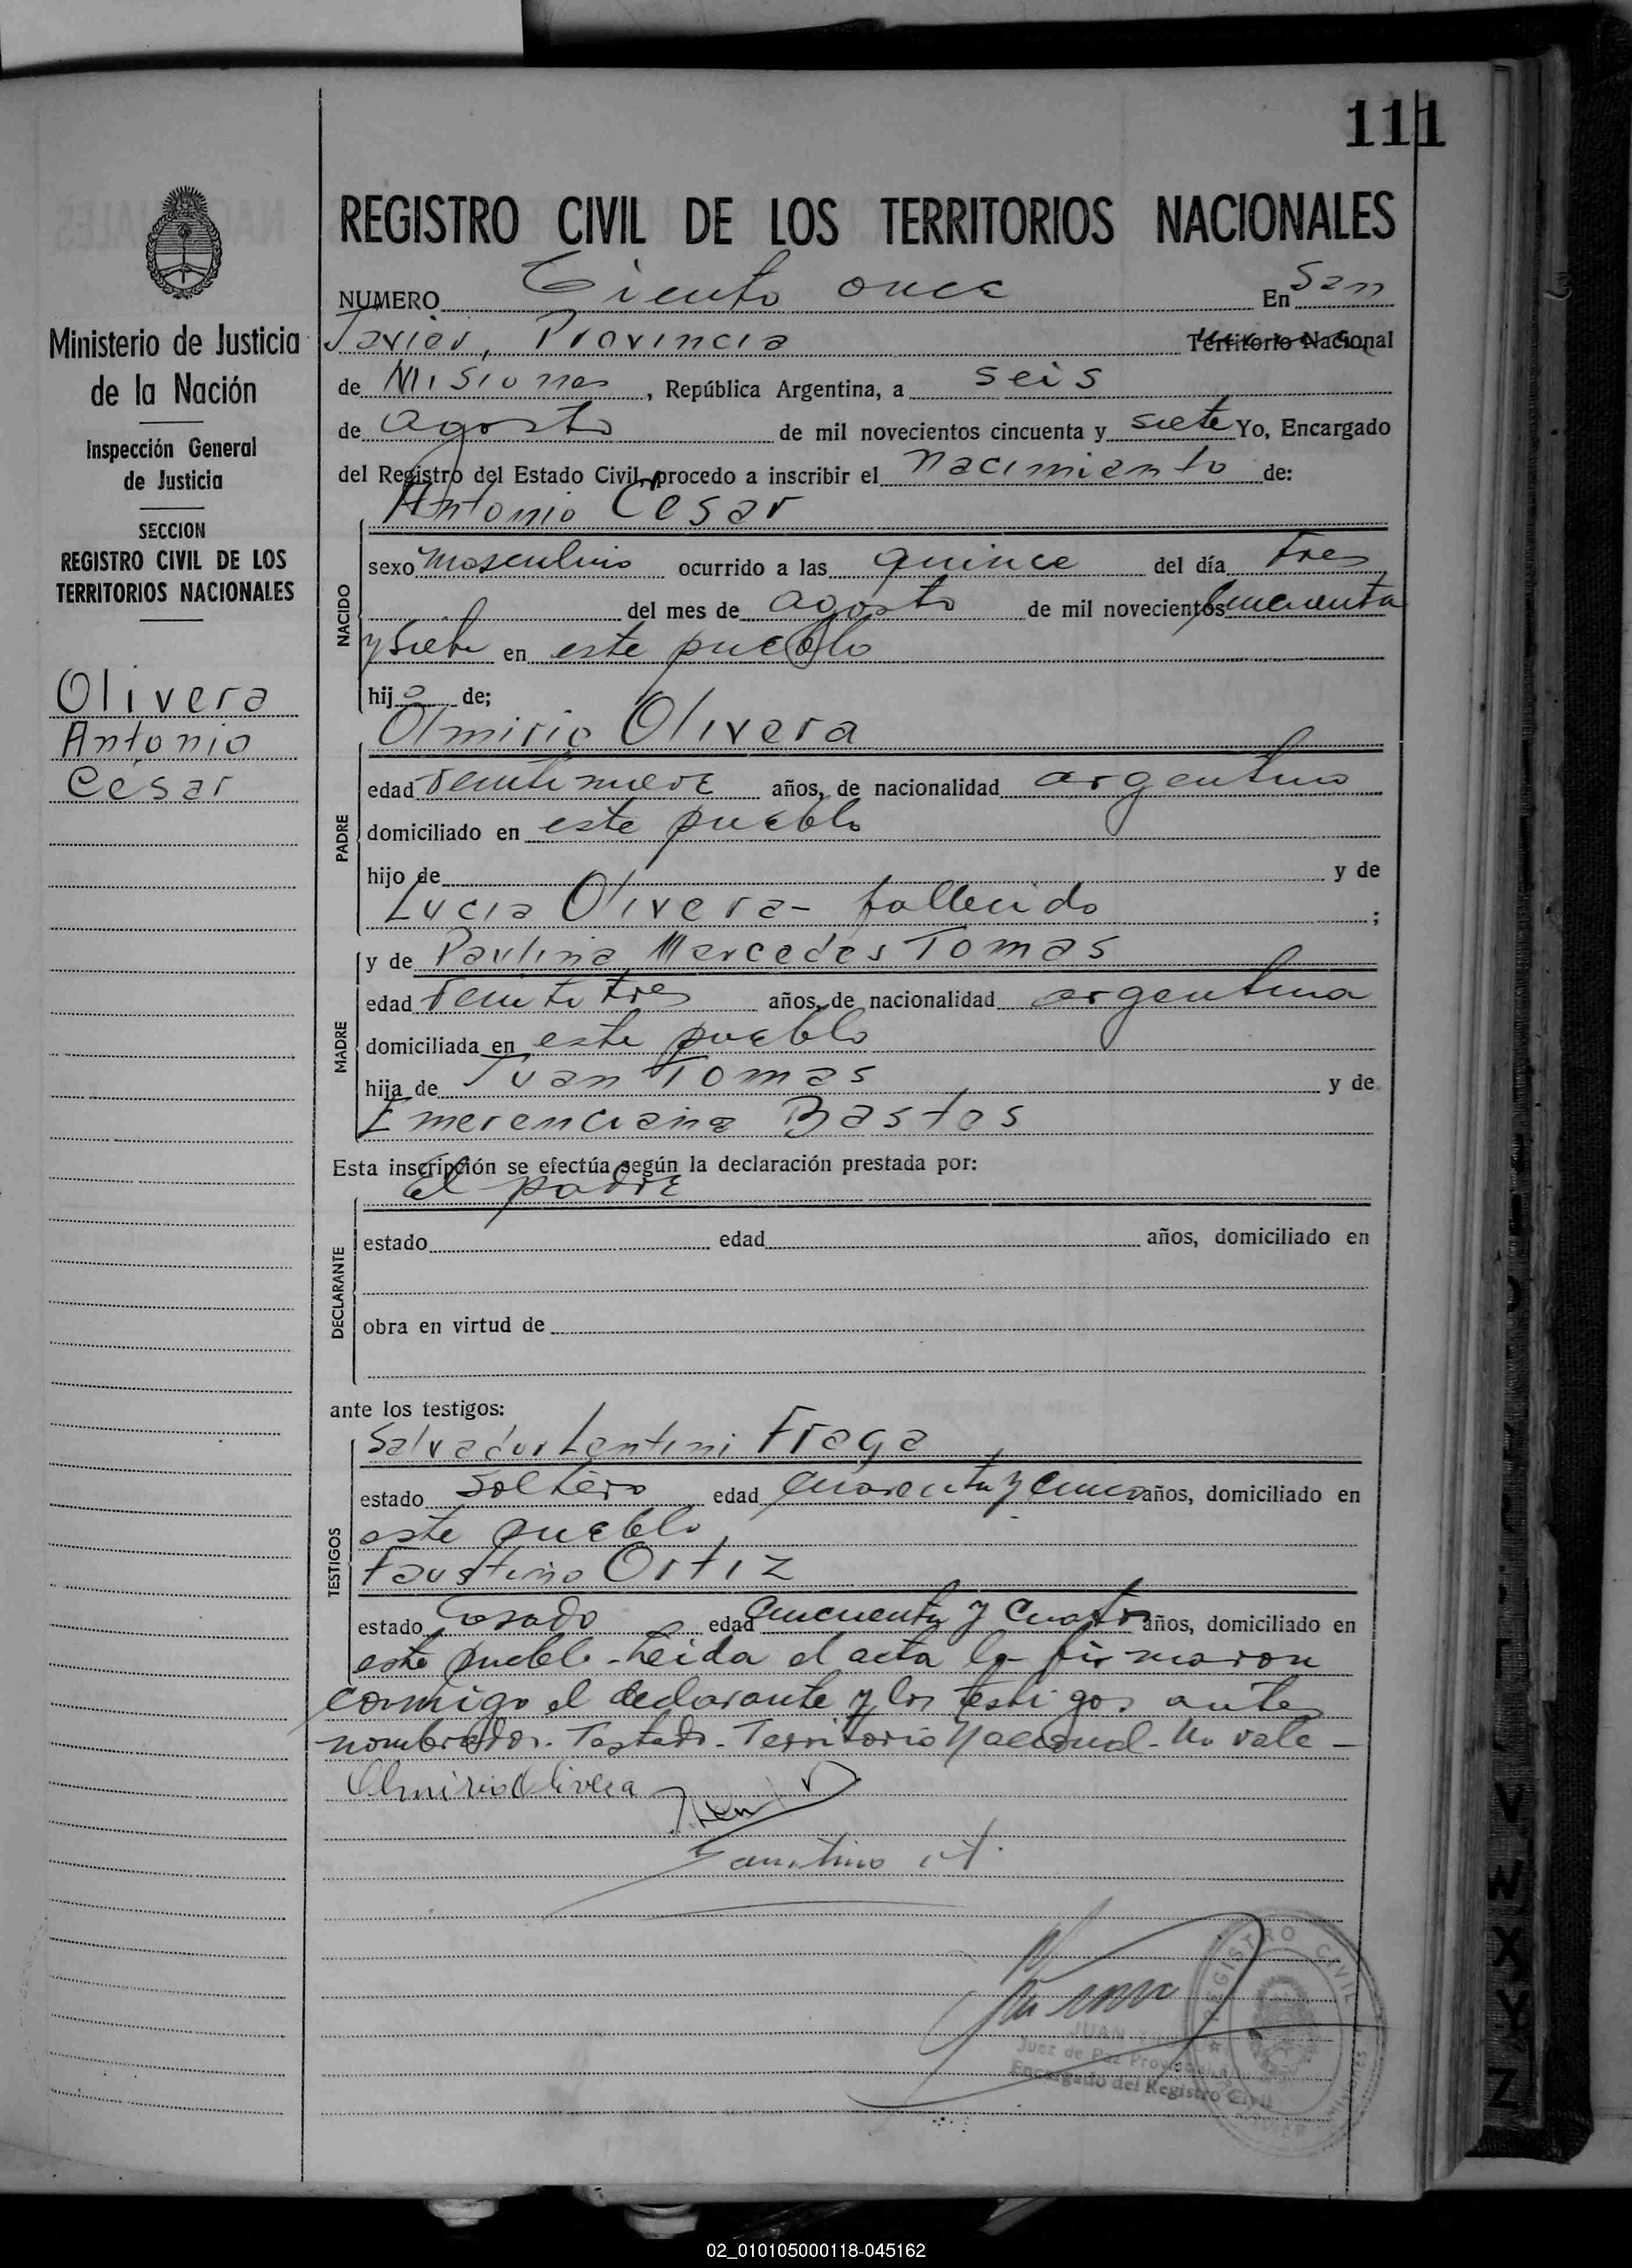 111
REGISTRO CIVIL DE LOS TERRITORIOS NACIONALES
NUMERO Ciento once En San
Javier, Provincia Territorio Nacional
de Misiones, República Argentina, a seis
de agosto de mil novecientos cincuenta y siete Yo, Encargado
del Registro del Estado Civil, procedo a inscribir el nacimiento de:
Antonio Cesar
NACIDO
sexo masculino ocurrido a las quince del día tres
del mes de agosto de mil novecientos cincuenta
y siete en este pueblo
hijo de;
Olmirio Olivera
PADRE
edad veintinueve años, de nacionalidad argentino
domiciliado en este pueblo
hijo de y de
Lucia Olivera - fallecido ;
y de Paulina Mercedes Tomas
MADRE
edad veintitres años, de nacionalidad argentina
domiciliada en este pueblo
hija de Juan Tomas y de
Emerenciana Bastos
Esta inscripción se efectúa según la declaración prestada por:
El padre
DECLARANTE
estado edad años, domiciliado en
obra en virtud de
ante los testigos:
Salvador Lentini Fraga
TESTIGOS
estado soltero edad cuarenta y cinco años, domiciliado en
este pueblo
Faustino Ortiz
estado casado edad cincuenta y cuatro años, domiciliado en
este pueblo - Leida el acta la firmaron
conmigo el declarante y los testigos antes
nombrados. Testado - Territorio Nacional - No vale -
Olmirio Olivera
Faustino
JUAN
Juez de Paz Provisional
Encargado del Registro Civil
REGISTRO CIVIL
MISIONES
JAVIER
Ministerio de Justicia
de la Nación
Inspección General
de Justicia
SECCION
REGISTRO CIVIL DE LOS
TERRITORIOS NACIONALES
Olivera
Antonio
César
V
W
X
Y
Z
02_010105000118-045162